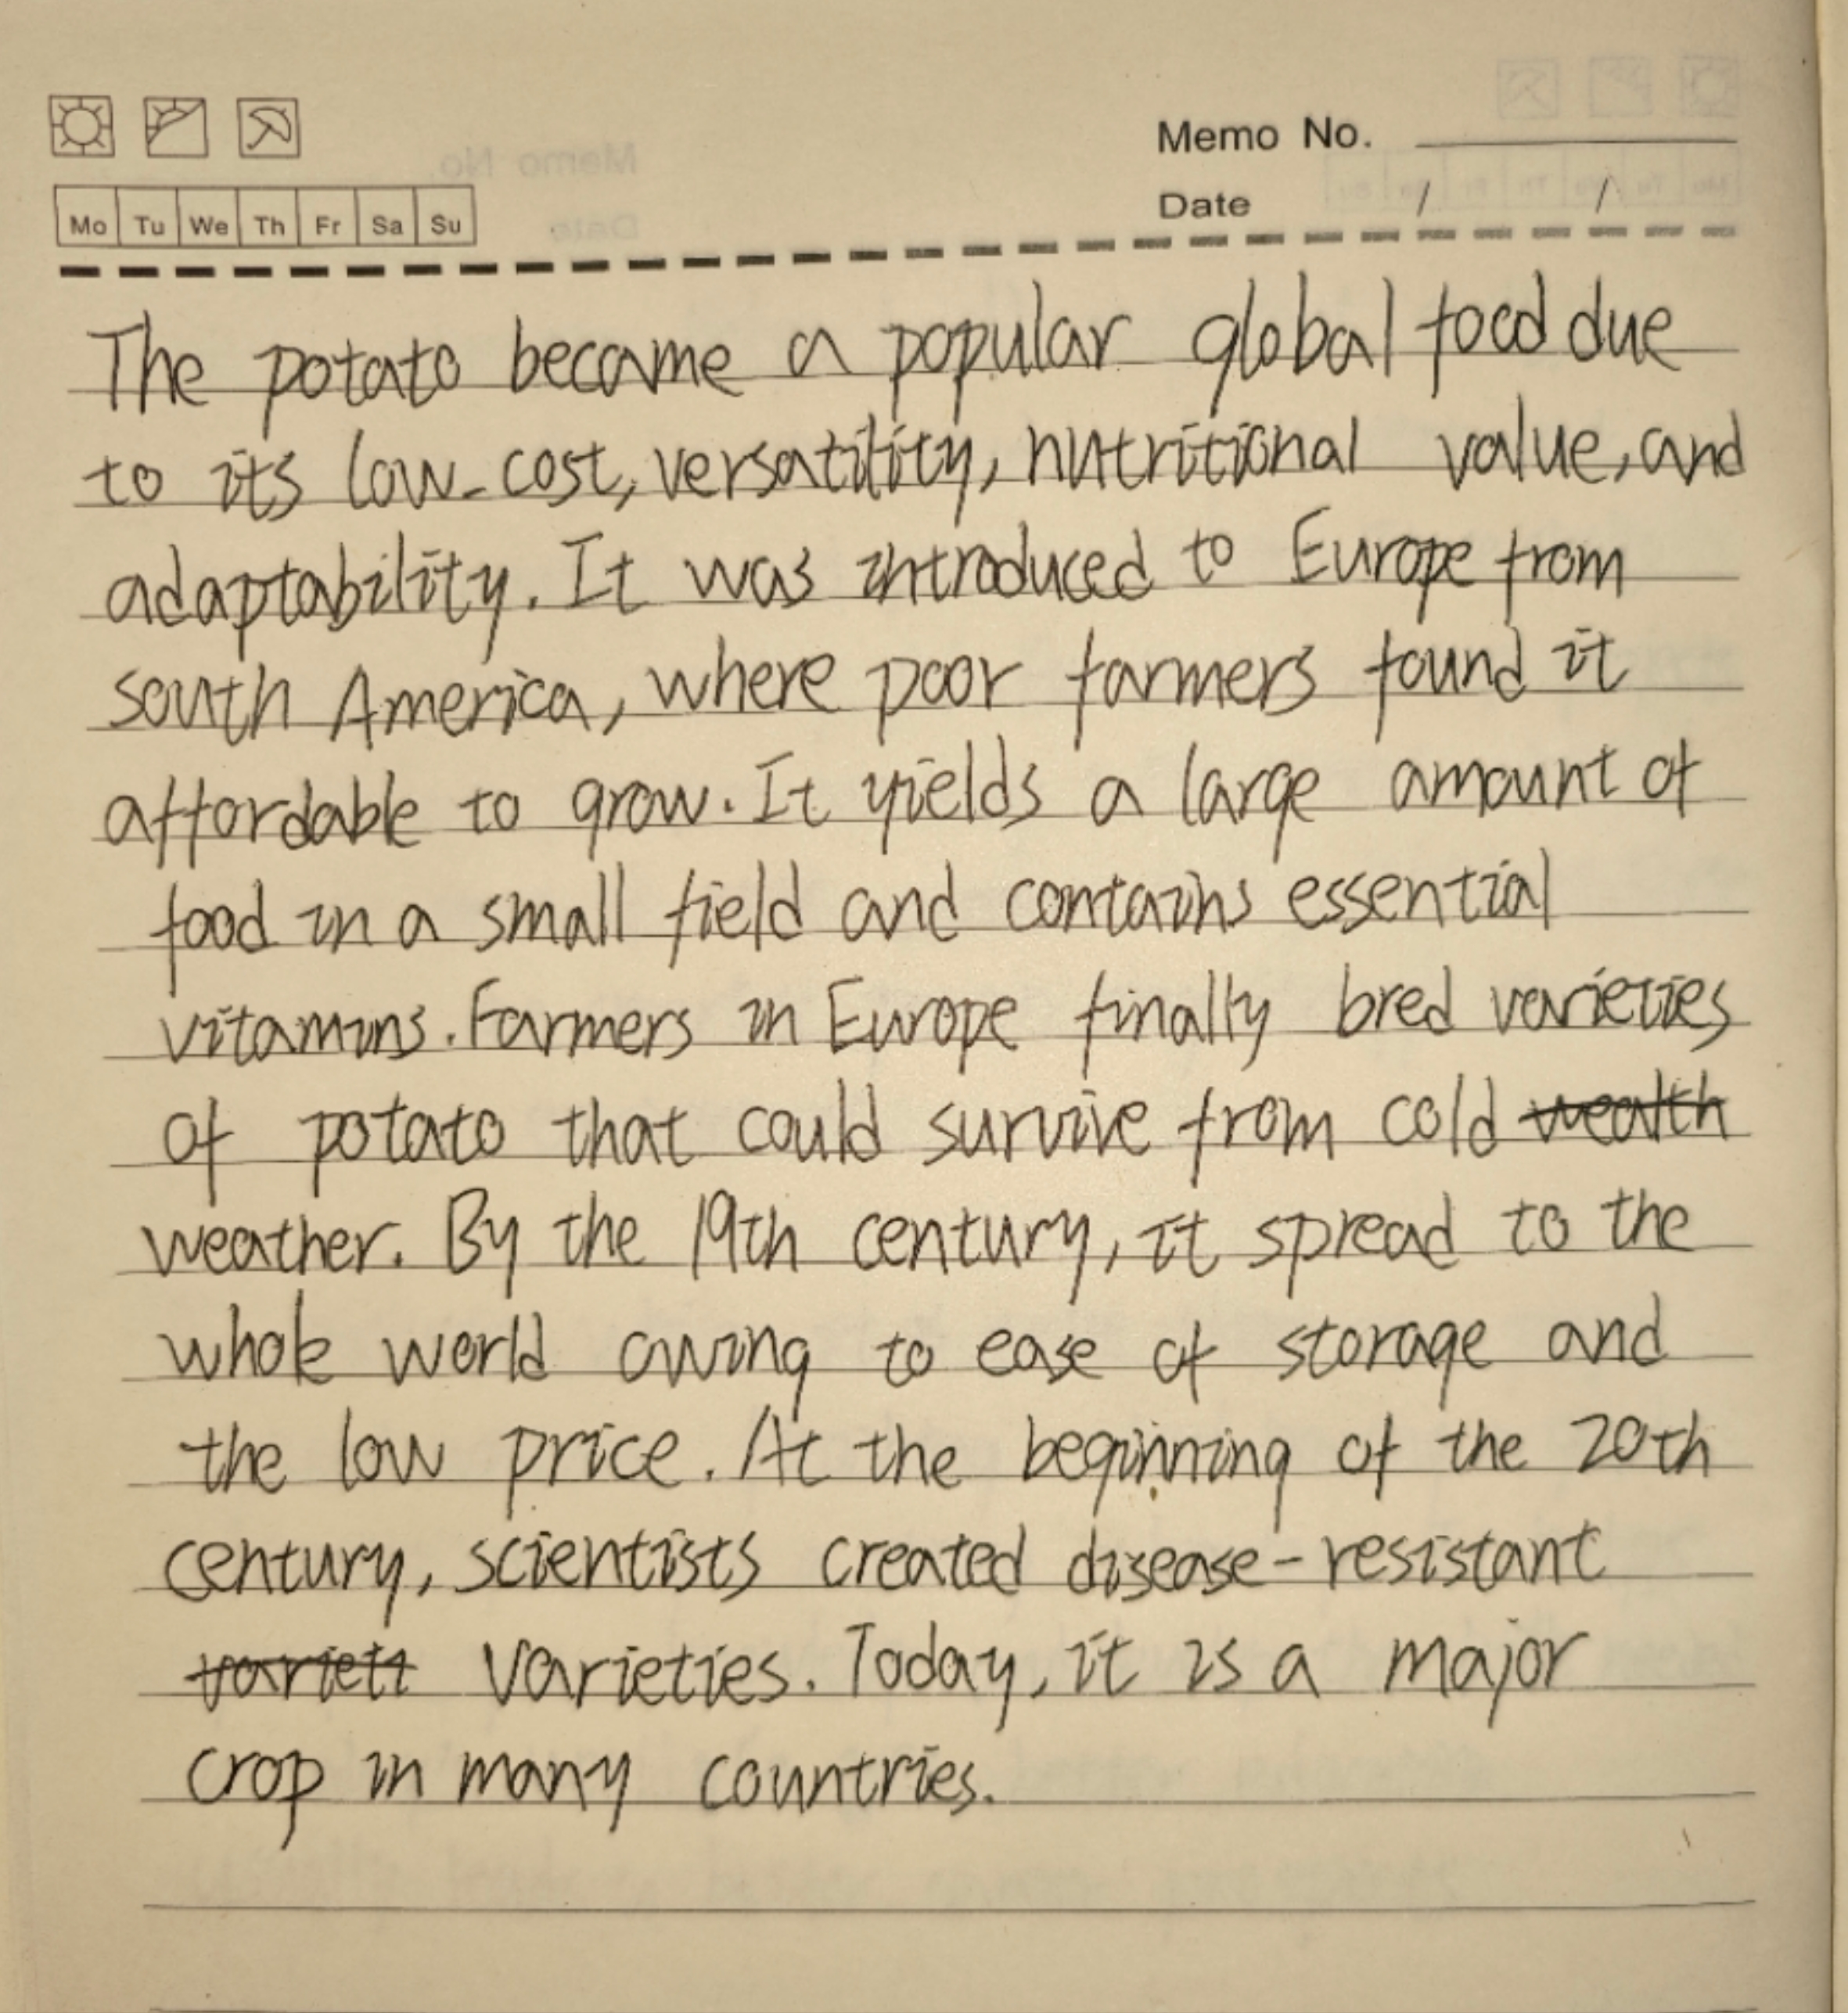 Memo No.
Date / /
Mo Tu We Th Fr Sa Su
The potato became a popular global food due
to its low-cost, versatility, nutritional value, and
adaptability. It was introduced to Europe from
south America, where poor farmers found it
affordable to grow. It yields a large amount of
food in a small field and contains essential
vitamins. Farmers in Europe finally bred varieties
of potato that could survive from cold wealth
weather. By the 19th century, it spread to the
whole world owing to ease of storage and
the low price. At the beginning of the 20th
century, scientists created disease-resistant
varieti varieties. Today, it is a major
crop in many countries.